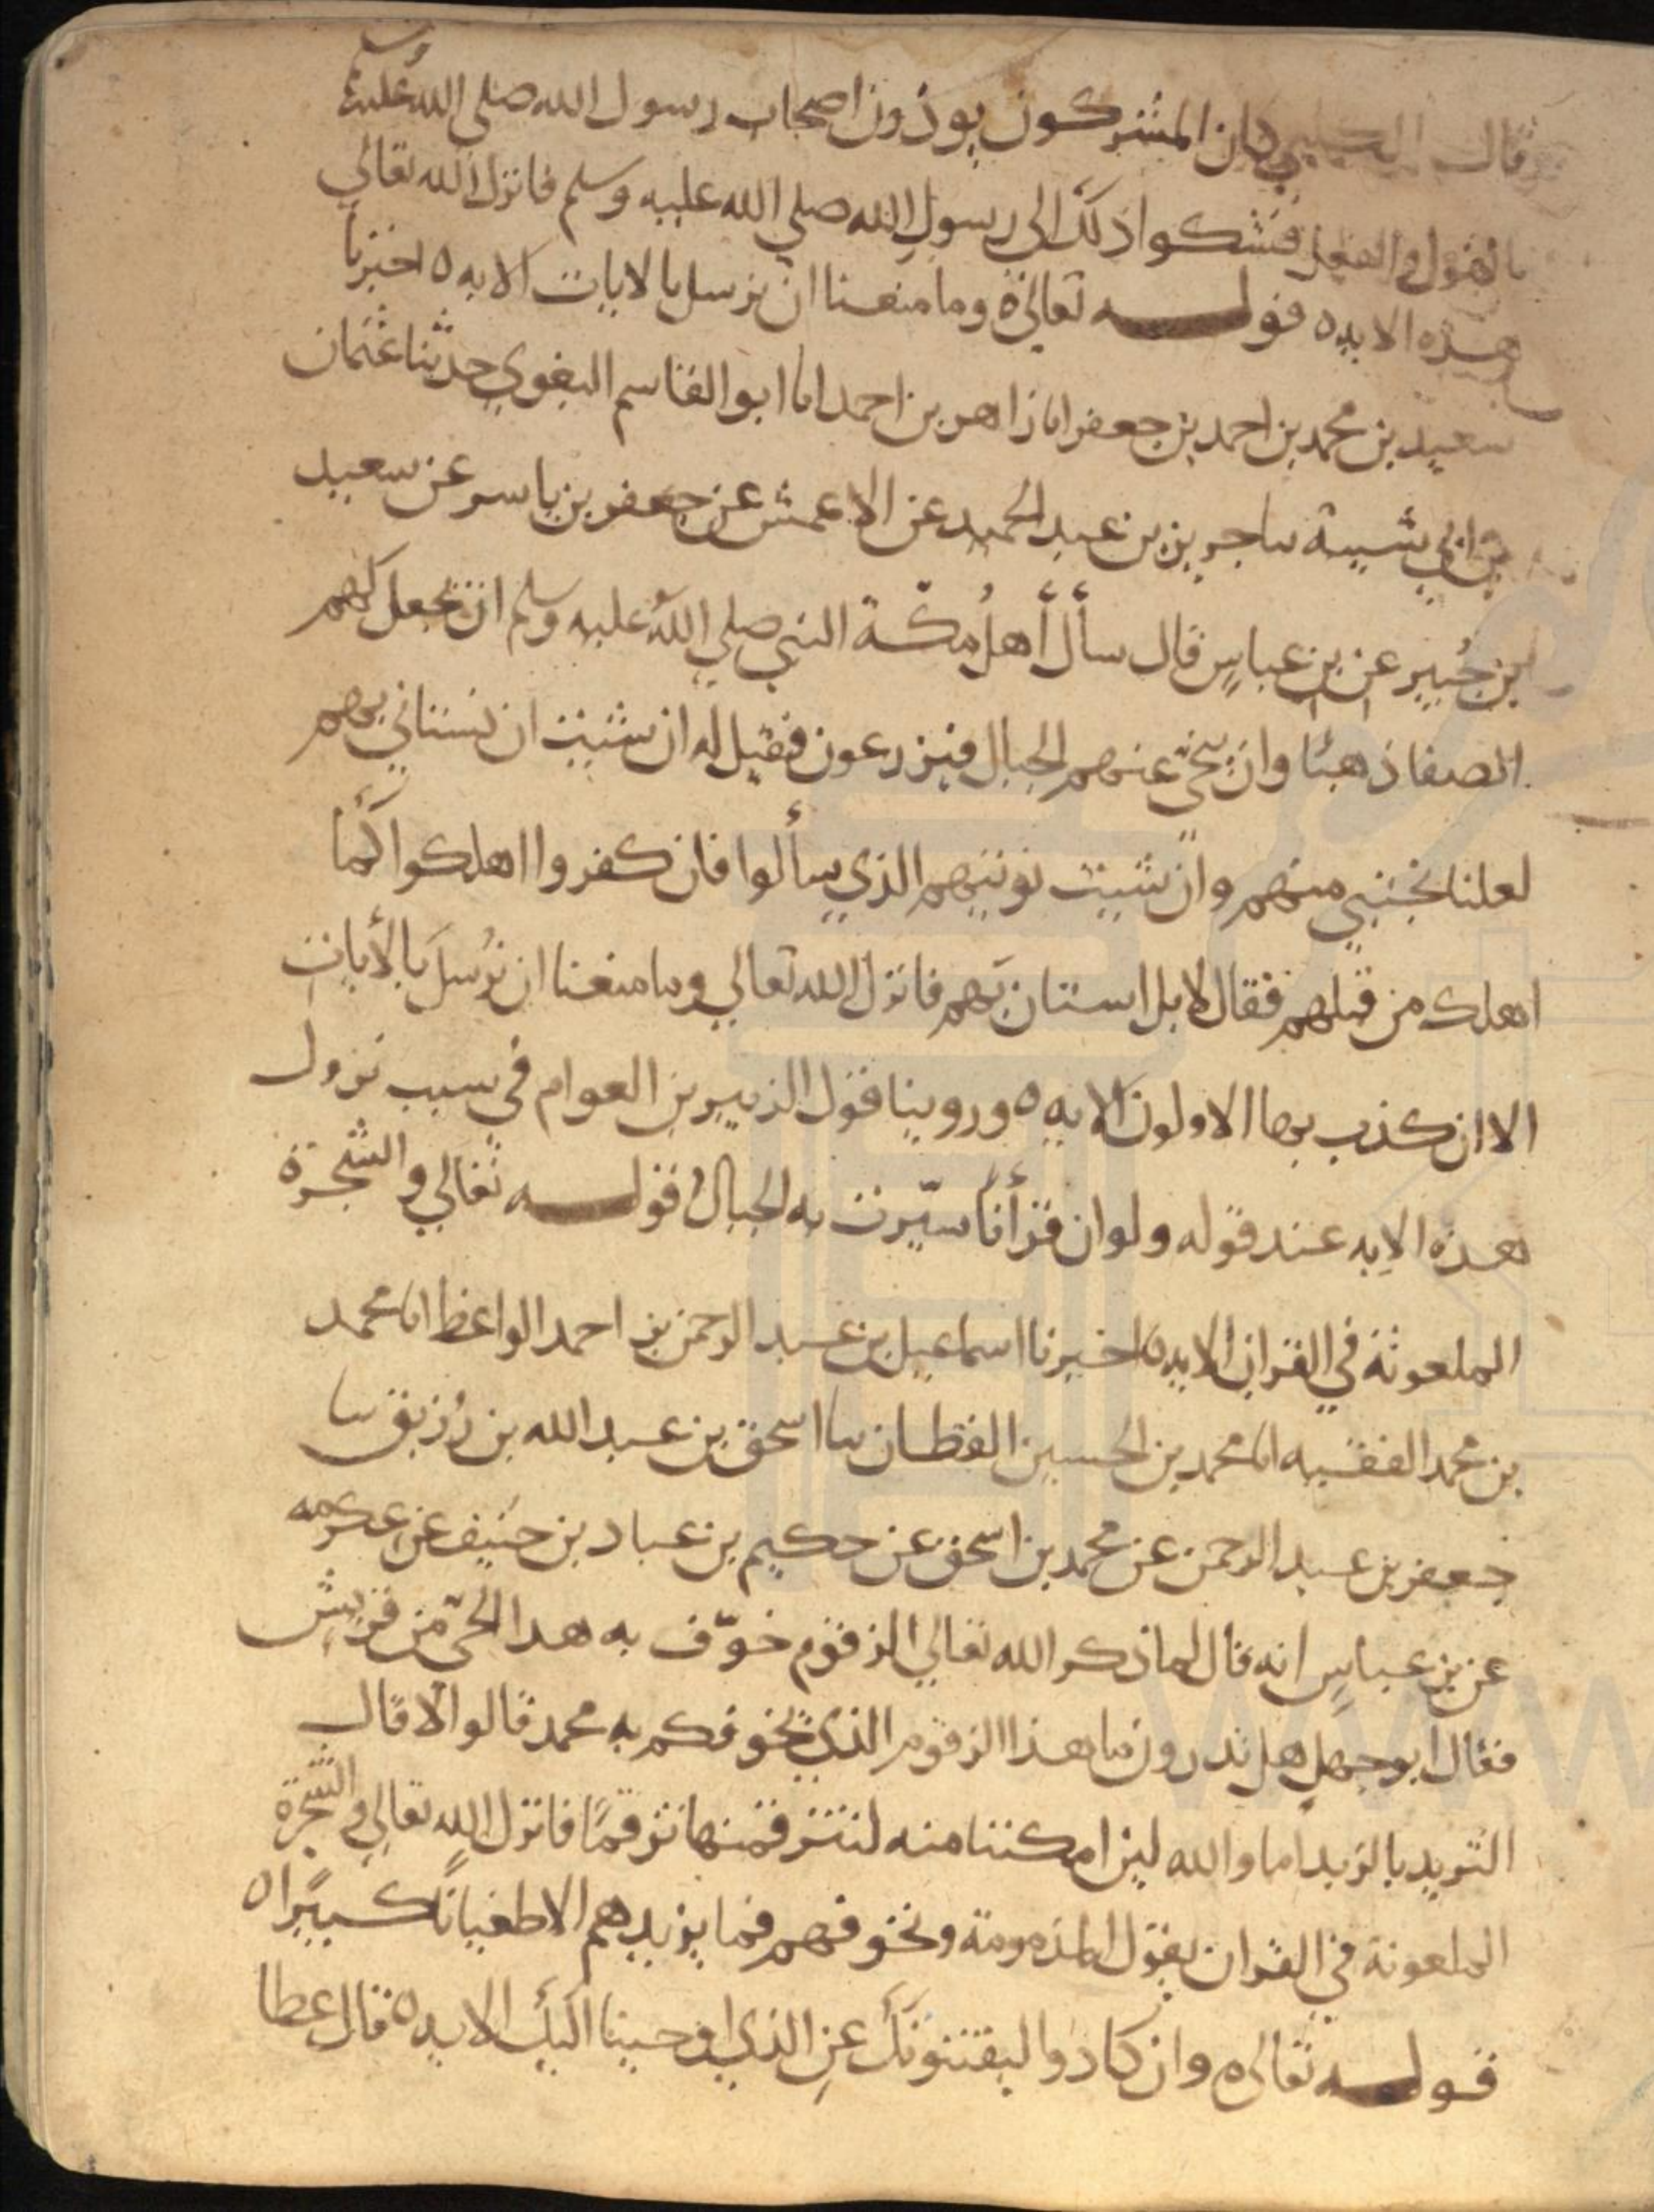 قال الكلبي كان المشركون يوذون اصحاب رسول الله صلى الله عليه وسلم
بالقول والفعل فشكوا ذلك الى رسول الله صلي الله عليه وسلم فانزل الله تعالي
هذه الايه ٥ قوله تعالى ٥ وما منعنا ان نرسل بالايات الايه ٥ اخبرنا
سعيد بن محمد بن احمد بن جعفر انا زاهر بن احمد انا ابو القاسم البغوي حدثنا عثمان
بن ابي شيبة سا جرير بن عبد الحميد عن الاعمش عن جعفر بن ياسر عن سعيد
بن جُبير عن بن عباسٍ قال سأل أهلُ مكّة النبي صلي اللهُ عليه وسلم ان تجعل لهم
الصفا ذهبًا وان ينحّي عنهم الجبال فيزرعون فقيل له ان شيت ان نستاني بهم
لعلنا نجتبي منهم وان شيت نوتيهم الذي سألوا فان كفروا اهلكوا كما
اهلك من قبلهم فقال لا بل استان بهم فانزل الله تعالي وما منعنا ان نُرسلَ بالأيات
الا ان كذب بها الاولون الايه ٥ وروينا قول الزبير بن العوام في سبب نزول
هذه الايه عند قوله ولو ان قرأنًا سيّرت به الجبالُ قوله تعالي والشجرة
الملعونة في القران الايه ٥ اخبرنا اسماعيل بن عبد الرحمن بن احمد الواعظ انا محمد
بن محمد الفقيه انا محمد بن الحسين القطان سا اسحق بن عبد الله بن رُزيق سا
جعفر بن عبد الرحمن عن محمد بن اسحق عن حكيم بن عباد بن حنيف عن عكرمه
عن بن عباسٍ انه قال لما ذكر الله تعالي الزقوم خوّف به هدا الحيّ من قريش
فقال ابو جهل هل تدرون ما هذا الزقوم الذي يخوفكم به محمد قالوا لا قال
الثريد بالزبد اما والله لين امكننا منه لنتزقمنها تزقمًا فانزل الله تعالي والشجرة
الملعونة في القران يقول المذمومة ونخوفهم فما يزيدهم الا طغيانًا كبيرًا ٥
قوله تعالى ٥ وان كادوا ليفتنونَكَ عنِ الذي اوحينا اليك الايه ٥ قال عطا